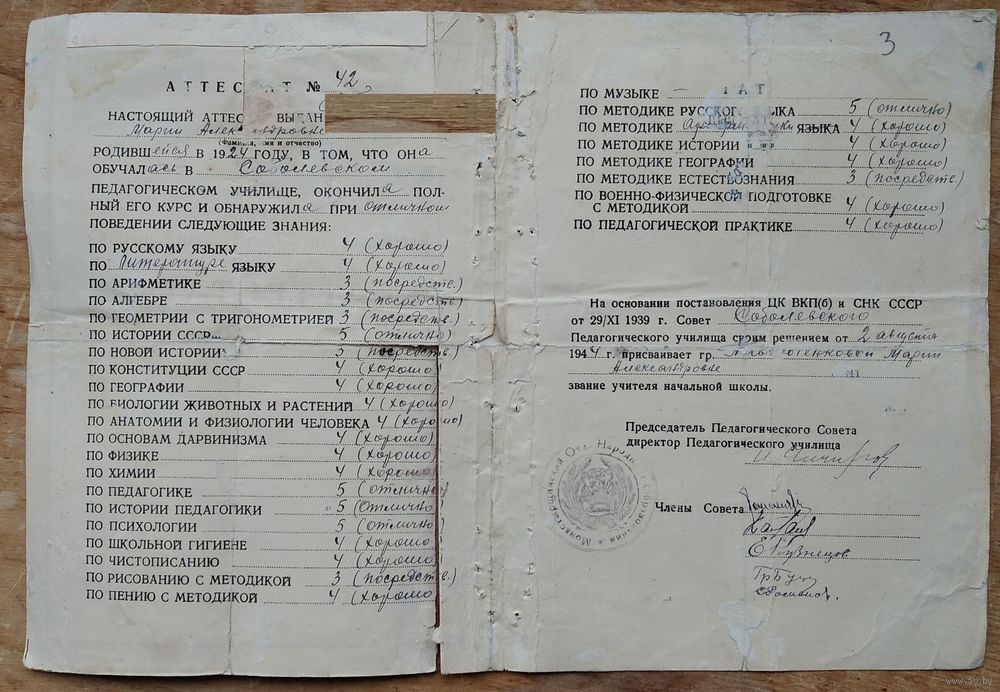 АТТЕСТАТ № 42
НАСТОЯЩИЙ АТТЕС ВЫДАН
Марии Александровне
(Фамилия, имя и отчество)
РОДИВШейся В 1924 ГОДУ, В ТОМ, ЧТО ОНа
ОБУЧАЛась В Соболевском
ПЕДАГОГИЧЕСКОМ УЧИЛИЩЕ, ОКОНЧИЛа ПОЛ-
НЫЙ ЕГО КУРС И ОБНАРУЖИЛа ПРИ отличном
ПОВЕДЕНИИ СЛЕДУЮЩИЕ ЗНАНИЯ:
ПО РУССКОМУ ЯЗЫКУ 4 (хорошо)
ПО Литературе ЯЗЫКУ 4 (хорошо)
ПО АРИФМЕТИКЕ 3 (посредств.)
ПО АЛГЕБРЕ 3 (посредств.)
ПО ГЕОМЕТРИИ С ТРИГОНОМЕТРИЕЙ 3 (посредств.)
ПО ИСТОРИИ СССР 5 (отлично)
ПО НОВОЙ ИСТОРИИ (посредств.)
ПО КОНСТИТУЦИИ СССР 4 (хорошо)
ПО ГЕОГРАФИИ 4 (хорошо)
ПО БИОЛОГИИ ЖИВОТНЫХ И РАСТЕНИЙ 4 (хорошо)
ПО АНАТОМИИ И ФИЗИОЛОГИИ ЧЕЛОВЕКА 4 (хорошо)
ПО ОСНОВАМ ДАРВИНИЗМА 4 (хорошо)
ПО ФИЗИКЕ 4 (хорошо)
ПО ХИМИИ 4 (хорошо)
ПО ПЕДАГОГИКЕ 5 (отлично)
ПО ИСТОРИИ ПЕДАГОГИКИ 5 (отлично)
ПО ПСИХОЛОГИИ 5 (отлично)
ПО ШКОЛЬНОЙ ГИГИЕНЕ 4 (хорошо
ПО ЧИСТОПИСАНИЮ 4 (хорошо
ПО РИСОВАНИЮ С МЕТОДИКОЙ 3 (посредств.)
ПО ПЕНИЮ С МЕТОДИКОЙ 4 (хорошо
3
ПО МУЗЫКЕ —
ПО МЕТОДИКЕ РУССКОГО ЯЗЫКА 5 (отлично)
ПО МЕТОДИКЕ Арифметики ЯЗЫКА 4 (хорошо)
ПО МЕТОДИКЕ ИСТОРИИ 4 (хорошо)
ПО МЕТОДИКЕ ГЕОГРАФИИ 4 (хорошо)
ПО МЕТОДИКЕ ЕСТЕСТВОЗНАНИЯ 3 (посредств.)
ПО ВОЕННО-ФИЗИЧЕСКОЙ ПОДГОТОВКЕ
С МЕТОДИКОЙ 4 (хорошо)
ПО ПЕДАГОГИЧЕСКОЙ ПРАКТИКЕ 4 (хорошо)
На основании постановления ЦК ВКП(б) и СНК СССР
от 29/XI 1939 г. Совет Соболевского
Педагогического училища своим решением от 2 августа
1944 г. присваивает гр. Марии
Александровне
звание учителя начальной школы.
Председатель Педагогического Совета
директор Педагогического училища
Члены Совета
Кузнецов
www.ay.by